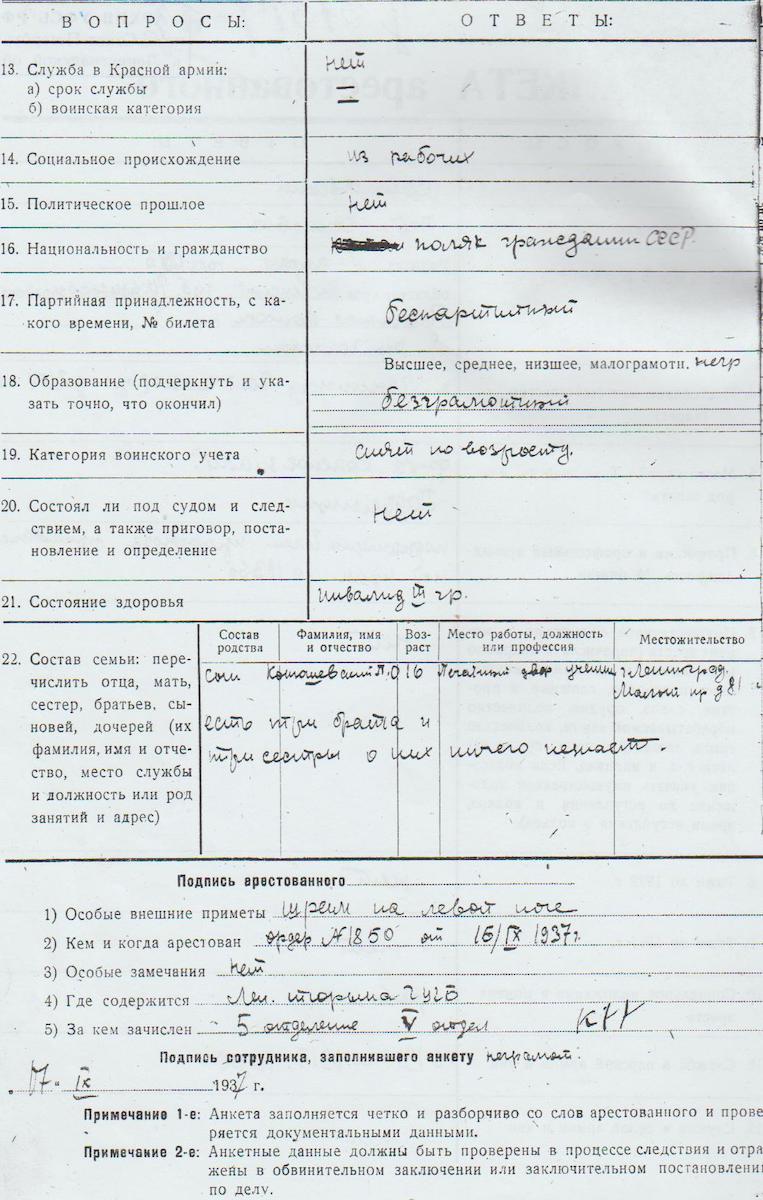 ВОПРОСЫ: ОТВЕТЫ:
13. Служба в Красной армии: нет
а) срок службы —
б) воинская категория
14. Социальное происхождение из рабочих
15. Политическое прошлое нет
16. Национальность и гражданство поляк гражданин СССР.
17. Партийная принадлежность, с ка-
кого времени, № билета беспартийный
Высшее, среднее, низшее, малограмотн. негр
18. Образование (подчеркнуть и ука-
зать точно, что окончил) безграмотный
19. Категория воинского учета снят по возрасту.
20. Состоял ли под судом и след-
ствием, а также приговор, поста- нет
новление и определение
21. Состояние здоровья инвалид III гр.
Состав родства Фамилия, имя и отчество Воз-раст Место работы, должность или профессия Местожительство
22. Состав семьи: пере-
числить отца, мать,
сестер, братьев, сы-
новей, дочерей (их
фамилия, имя и отче-
ство, место службы
и должность или род
занятий и адрес)
сын П.О 16 Печатный двор ученик г. Ленинград.
Малый пр д 81
есть три брата и
три сестры о них ничего незнает.
Подпись арестованного
1) Особые внешние приметы шрам на левой ноге
2) Кем и когда арестован ордер №1850 от 16/IX 1937г.
3) Особые замечания нет
4) Где содержится Лен. тюрьма УГБ
5) За кем зачислен 5 отделение V отдел
Подпись сотрудника, заполнившего анкету неграмот.
17 IX 1937 г.
Примечание 1-е: Анкета заполняется четко и разборчиво со слов арестованного и прове
ряется документальными данными.
Примечание 2-е: Анкетные данные должны быть проверены в процессе следствия и отра
жены в обвинительном заключении или заключительном постановлени
по делу.